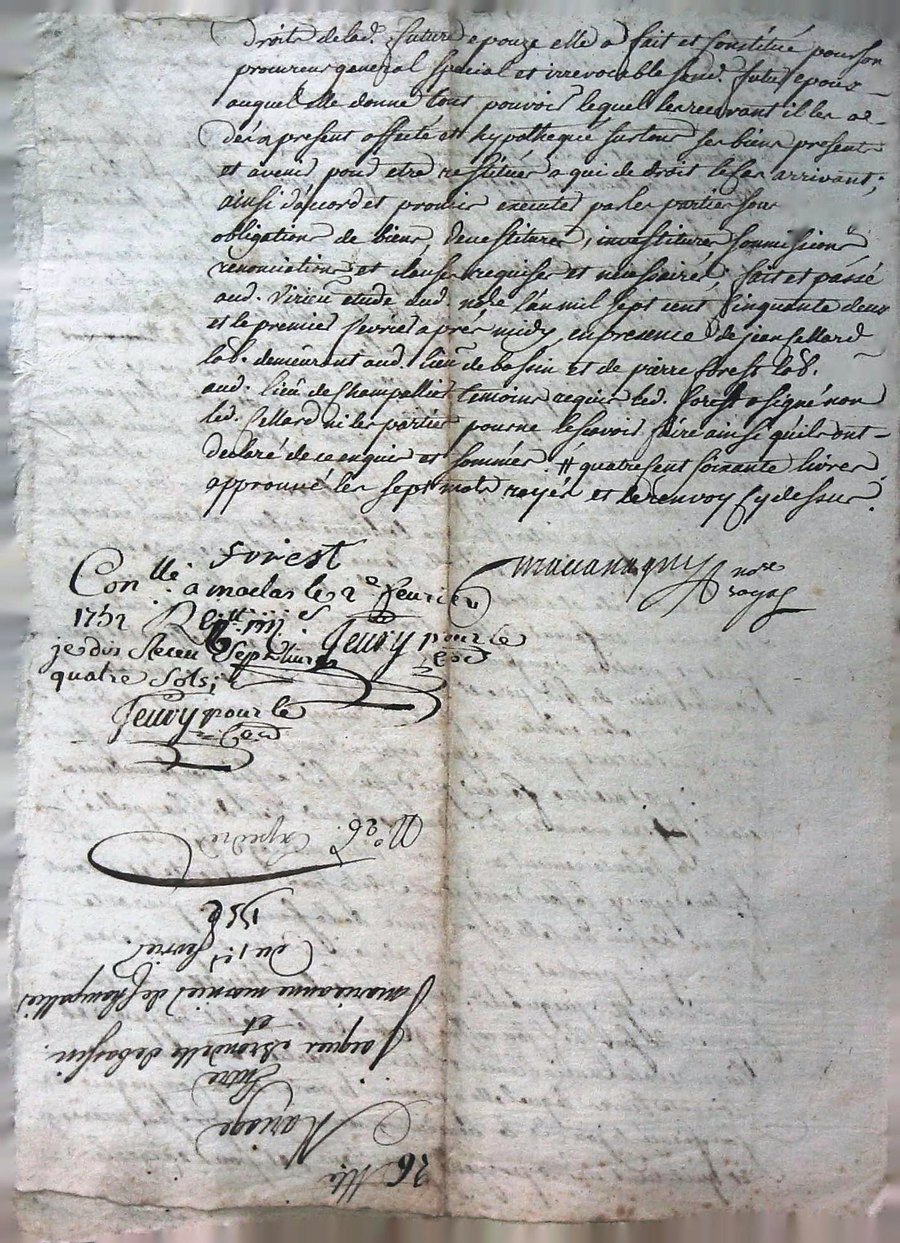 droits de lad. future epouze elle a fait et constitué pour son
procureur general special et irrevocable sond. futur epoux
auquel elle donne tout pouvoir lequel les recevant il les a
des a present affecté et hypothequé sur tous ses biens presents
et avenir pour etre restitués a qui de droit le cas arrivant;
ainsi d'acord et promis executer par les parties sous
obligations de biens, devestitures, investitures soumissions
renonciations et clauses requises et necessaires, fait et passé
aud. Virieu etude dud. nore l'an mil sept cent cinquante deux
et le premier fevrier après midy en presence de jean Cellard
lab. demeurant aud. lieu de bassin et de pierre forest lab.
aud. lieu de Champallier temoins requis led. forest a signé non
led. Cellard ni les parties pour ne le scavoir faire ainsi qu'ils ont
declaré de ce enquis et sommés. # quatre cent soixante livres
approuvé les sept mots rayés et le renvoy cy dessus.
forest
nore
royal
Conllé a maclas le 2e feurier
1752
jeury pour le
je dis Receu sept livres
quatre sols;
jeury pour le
N° 26. Expedié
1752
du 1er fevrier
marianne marier de Champallier
et
Jacques de bassin.
Entre
Mariage
26